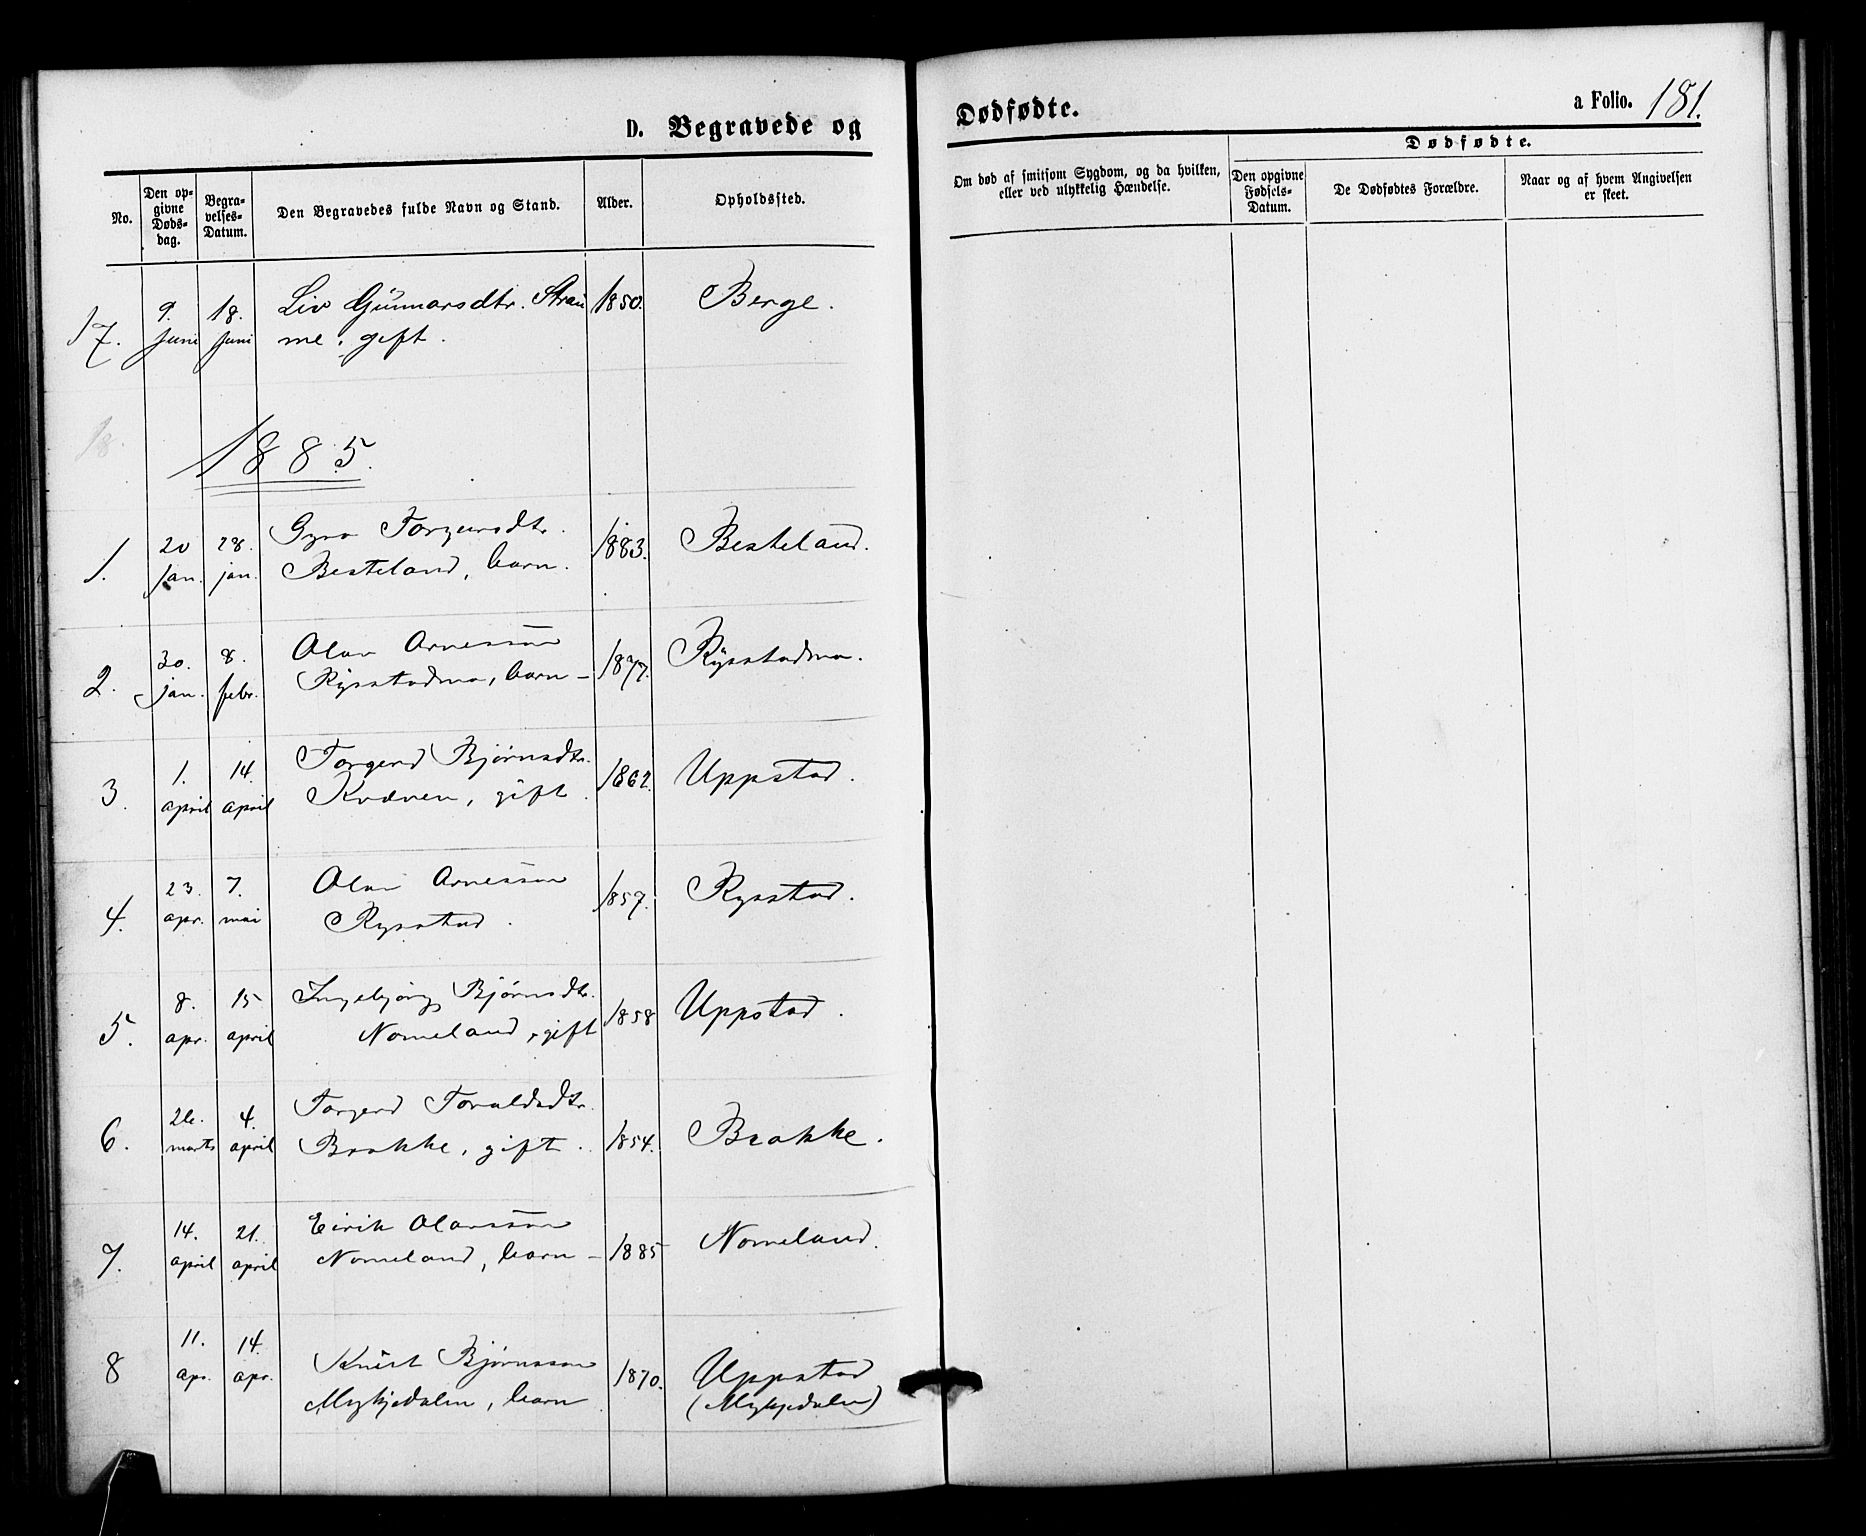 D. Begravede og
Dødfødte.
a Folio. 181.
No.
Den op-
givne
Døds-
dag.
Begra-
velses-
Datum.
Den Begravedes fulde Navn og Stand.
Alder.
Opholdssted.
Om død af smitsom Sygdom, og da hvilken,
eller ved ulykkelig Hændelse.
Dødfødte.
Den opgivne
Fødsels-
Datum.
De Dødfødtes Forældre.
Naar og af hvem Angivelsen
er skeet.
17. 9. Juni 18. Juni Liv Gunnarsdtr. Strau 1850. Berge.
me, gift.
18.
1885.
1. 20 jan. 28. jan. Gyro Torgeirsdtr. 1883. Besteland.
Besteland, barn.
2. 30. jan. 8. febr. Olav Arnesson 1877. Rysstadmo.
Rysstadmo, barn –
3. 1. april 14. april Torgerd Bjørnsdtr. 1862. Uppstad.
Kvæven, gift.
4. 23. apr. 7. mai Olav Arnesson 1857. Rysstad.
Rysstad.
5. 8. apr. 15 april Ingebjørg Bjørnsdtr. 1858 Uppstad.
Nomeland, gift
6. 26. marts 4. april Torgerd Toraldsdtr. 1854. Brokke.
Brokke, gift.
7. 14. april 21. april Eirik Olavsson 1885 Nomeland.
Nomeland, barn –
8 11. apr. 14. apr. Knut Bjørnsson 1870. Uppstad
Mykjedalen, barn (Mykjedalen)